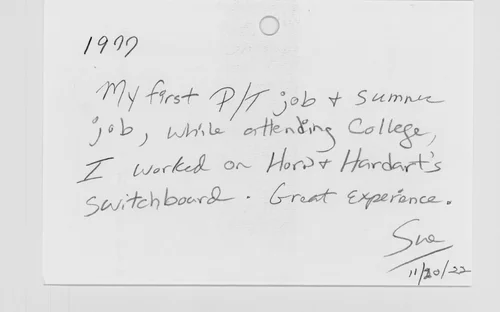 1977
My first P/T job & summer
job, while attending College,
I worked on Horn & Hardart's
Switchboard. Great Experience.
Sue
11/20/22